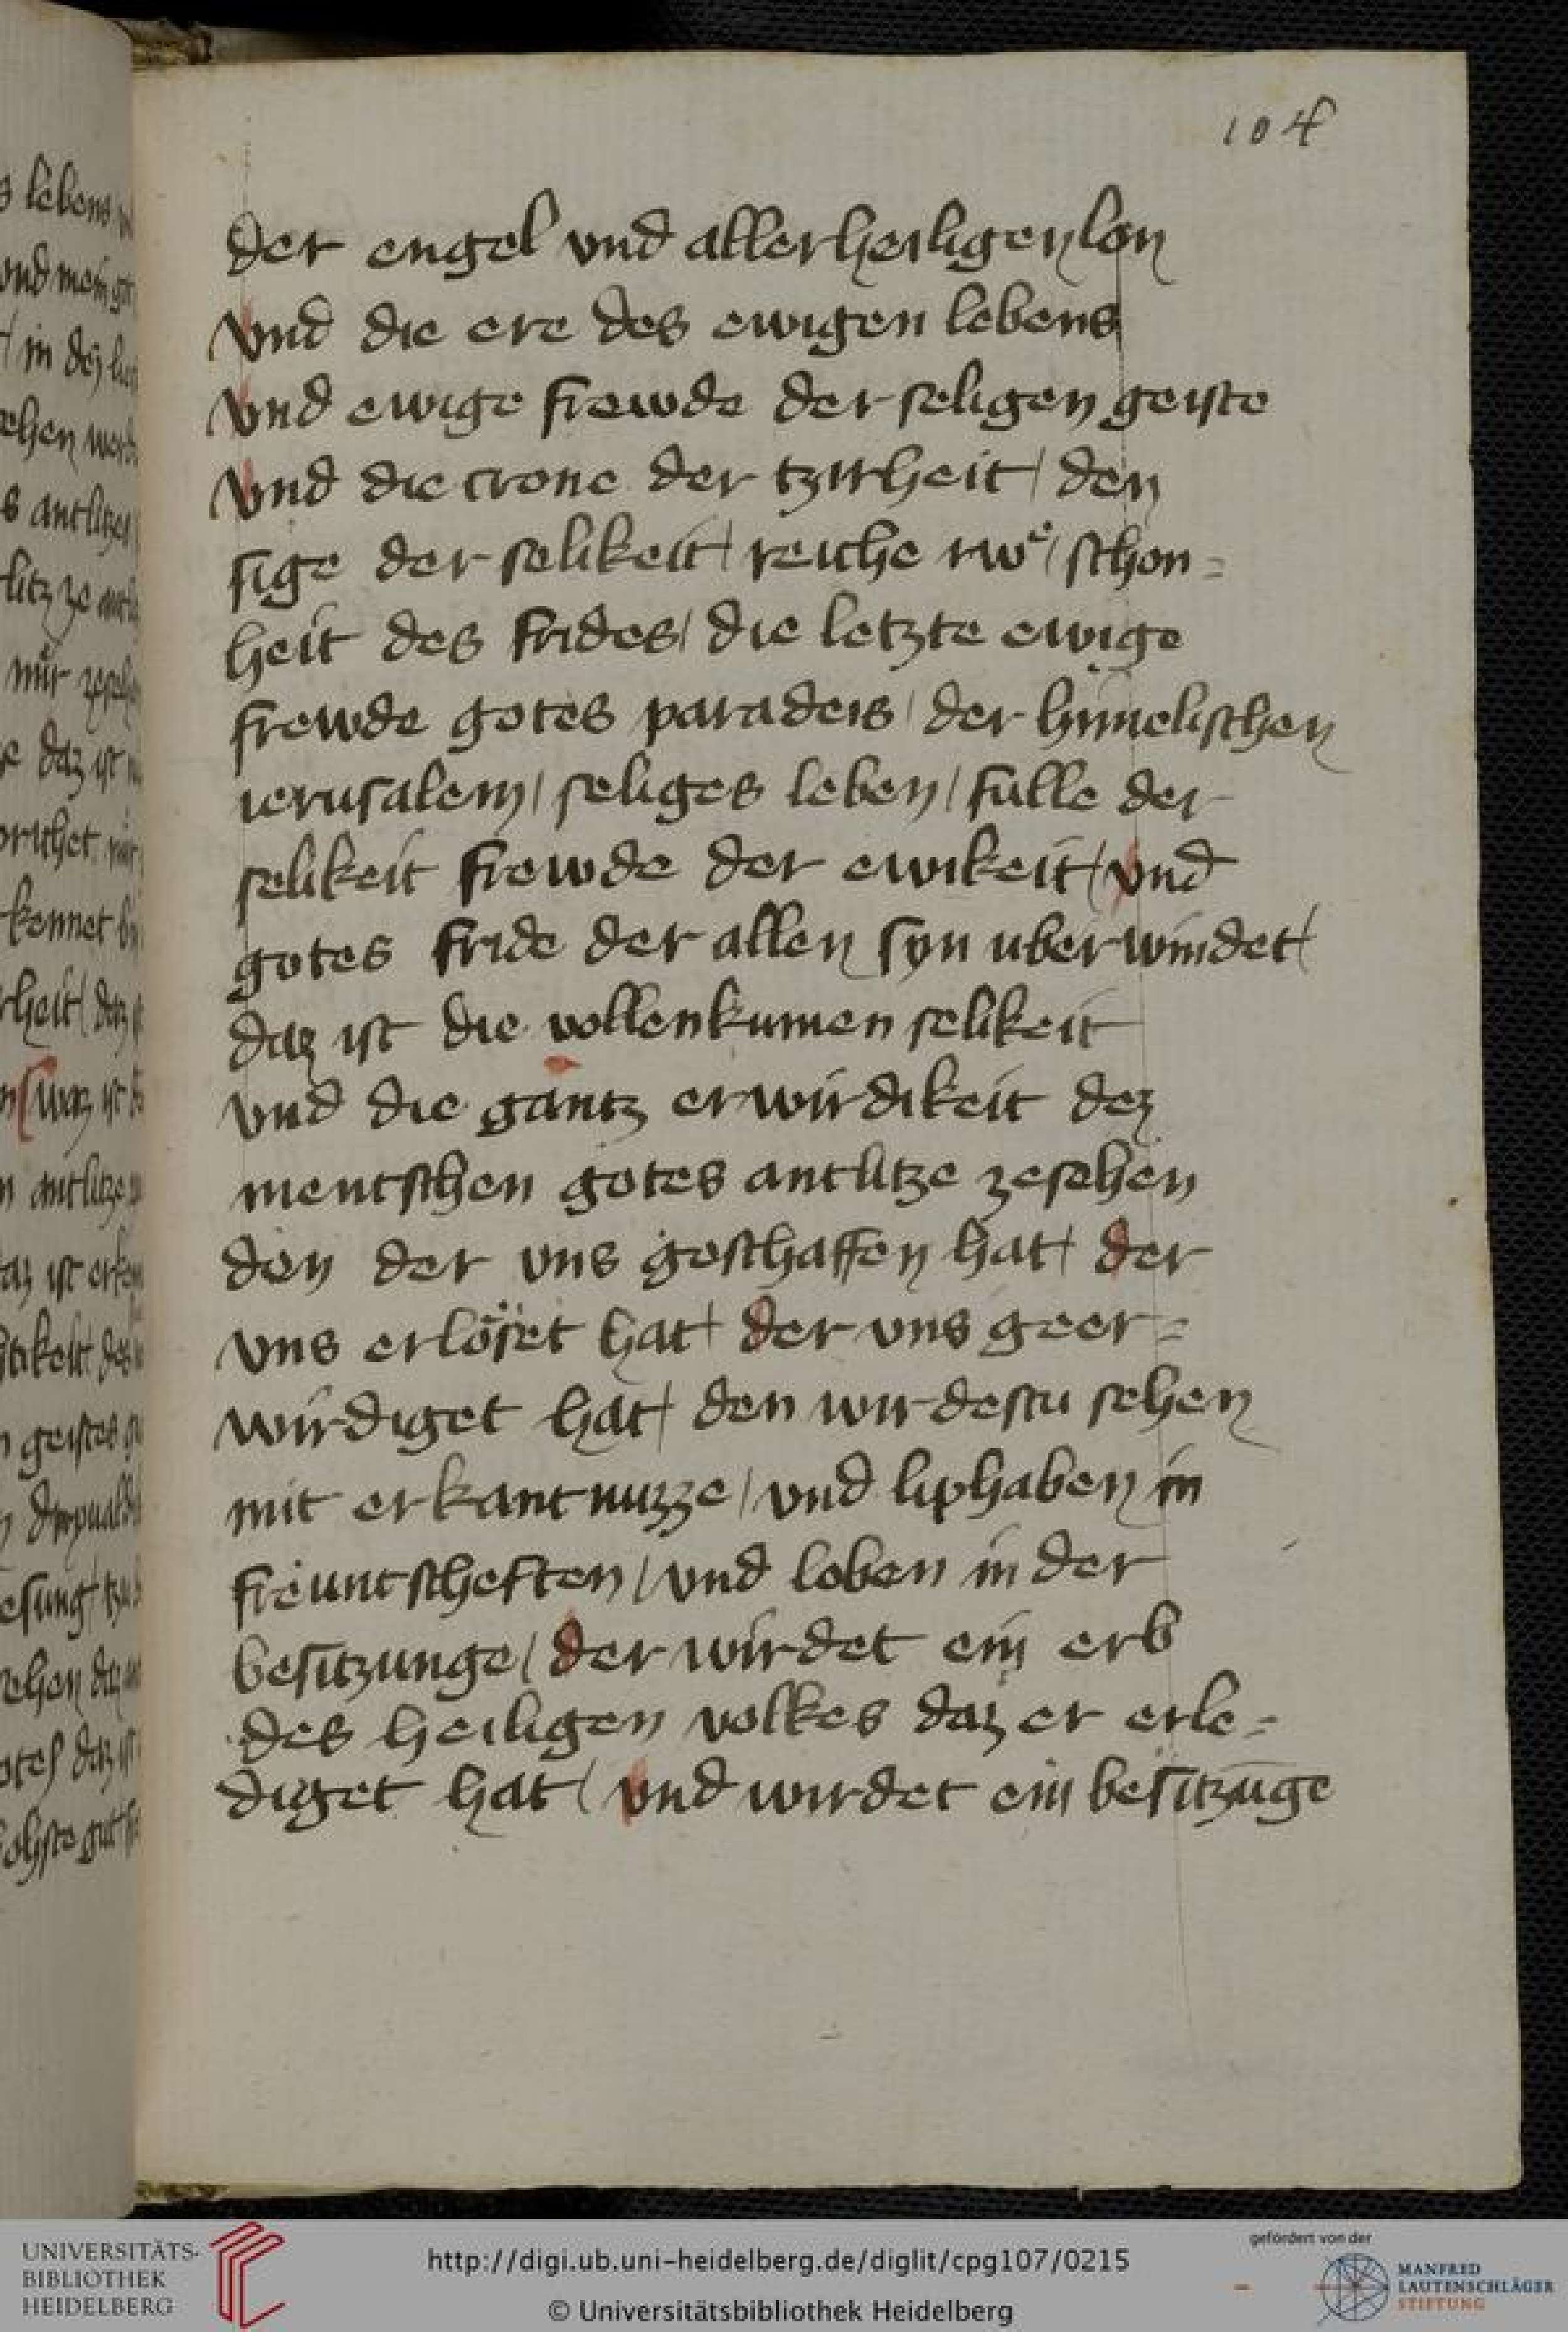 104
der engel vnd aller heiligen lon
Vnd die ere des ewigen lebens
Vnd ewige frewde der seligen geiste
Vnd die crone der tzirheit / den
sige der selikeit / reiche rwͤ / schon=
heit des frides / die letzte ewige
frewde gotes paradeis / der himelischen
ierusalem / seliges leben / fulle der
selikeit frewde der ewikeit / vnd
gotes fride der allen syn uberwindet /
daz ist die vollenkumen selikeit
vnd die gantz erwirdikeit dez
mentschen gotes antlitze zesehen
den der vns geschaffen hat / der
vns erlöset hat / der vns geer=
wirdiget hat / den wirdestu sehen
mit erkantnuzze / vnd liphaben in
freuntscheften / vnd loben in der
besitzunge / der wirdet ein erb
des heiligen volkes daz er erle=
diget hat / vnd wirdet ein besitzūge
UNIVERSITÄTS-
BIBLIOTHEK
HEIDELBERG
http://digi.ub.uni-heidelberg.de/diglit/cpg107/0215
© Universitätsbibliothek Heidelberg
gefördert von der
MANFRED
LAUTENSCHLÄGER
STIFTUNG